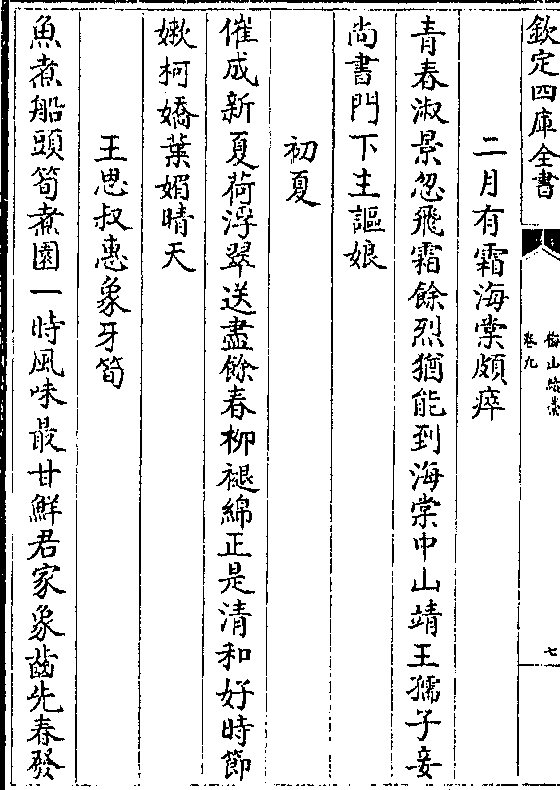 欽定四庫全書
卷九
七
二月有霜海棠頗瘁
青春淑景忽飛霜餘烈猶能到海棠中山靖王孺子妾
尚書門下主謳娘
初夏
催成新夏荷浮翠送盡餘春柳褪綿正是清和好時節
嫰柯嬌葉媚晴天
王思叔惠象牙筍
魚煮船頭筍煮園一時風味最甘鮮君家象齒先春發